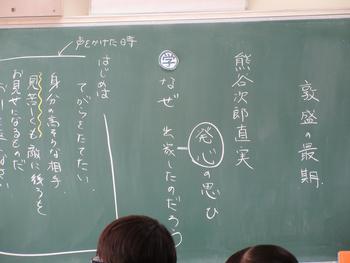 敦盛の最期
熊谷次郎直実
発心の思ひ
学 なぜ出家したのだろう
声をかけた時
はじめは
てがらをたてたい。
身分の高そうな相手
見苦しくも敵に後ろを
お見せになるものだ